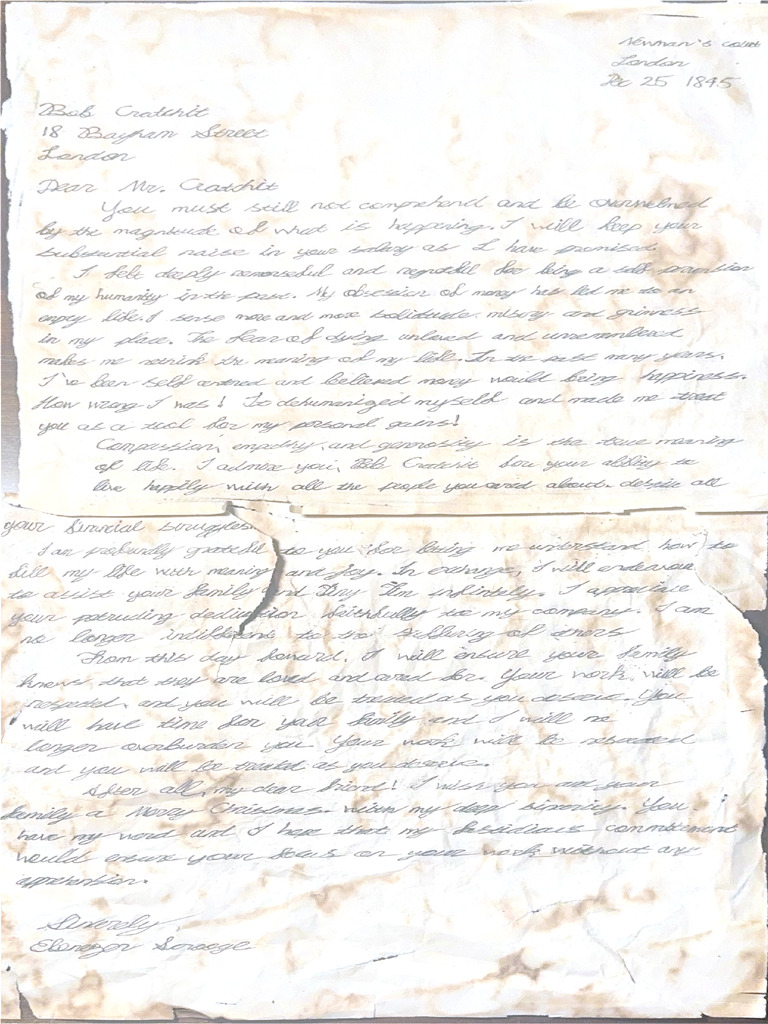 Newman's court
London
Dec 25 1845
Bob Cratchit
18 Bayham Street
London
Dear Mr. Cratchit
You must still not comprehend and be overwhelmed
by the magnitude of what is happening. I will keep your
substantial raise in your salary as I have promised.
I felt deeply remorseful and regretful for being a self
of my humanity in the past. My obsession of money has led me to an
empty life. I sense more and more solitude, misery and grimness
in my place. The fear of dying unloved and unremembered
makes me rethink the meaning of my life. In the past many years,
I've been self centred and believed money would bring happiness.
How wrong I was! It dehumanized myself and made me treat
you as a tool for my personal gains!
Compassion, empathy, and generosity is the true meaning
of life. I admire you, Bob Cratchit for your ability to
live happily with all the people you cared about. despite all
your financial struggles.
I am profoundly grateful to you for having me understand how to
fill my life with meaning and joy. In exchange, I will endeavour
to assist your family and Tiny Tim infinitely. I appreciate
your protruding dedication faithfully to my company. I am
no longer indifferent to the suffering of others
From this day forward, I will ensure your family
knows that they are loved and cared for. Your work will be
respected, and you will be treated as you deserve. You
will have time for your family and I will no
longer overburden you. Your work will be rewarded
and you will be treated as you deserve.
After all, my dear friend! I wish you and your
family a Merry Christmas. with my deep sincerity. You
have my word and I hope that my fastidious commitment
would ensure your focus on your work without any
apprehension.
Sincerely,
Ebenezer Scrooge